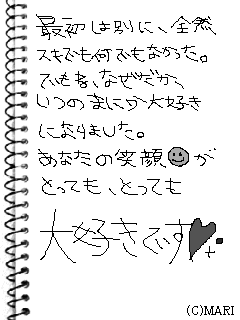 最初は別に、全然
スキでも何でもなかった。
でもネ、なぜだか、
いつのまにか大好き
になりました。
あなたの笑顔が
とっても、とっても
大好きです
(C)MARI